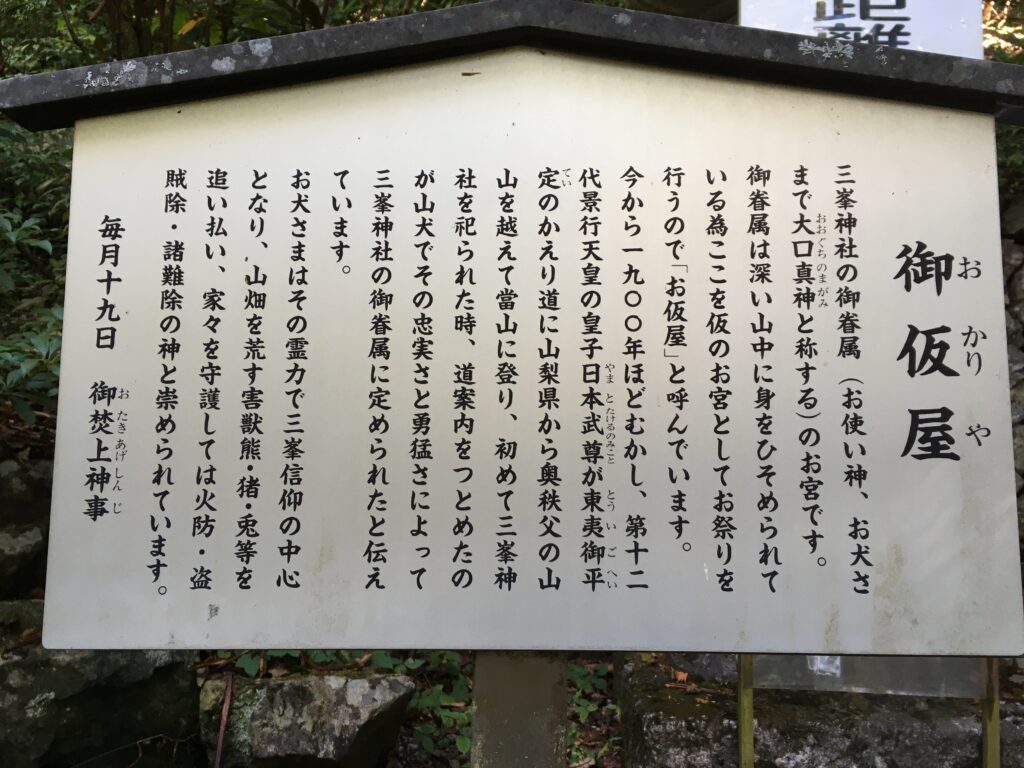 距離
御仮屋
おかりや
三峯神社の御眷属(お使い神、お犬さ
まで大口真神と称する)のお宮です。
おおぐちのまがみ
御眷属は深い山中に身をひそめられて
いる為ここを仮のお宮としてお祭りを
行うので「お仮屋」と呼んでいます。
今から一九〇〇年ほどむかし、第十二
代景行天皇の皇子日本武尊が東夷御平
やまとたけるのみこと とういごへい
定のかえり道に山梨県から奥秩父の山
てい
山を越えて當山に登り、初めて三峯神
社を祀られた時、道案内をつとめたの
が山犬でその忠実さと勇猛さによって
三峯神社の御眷属に定められたと伝え
ています。
お犬さまはその霊力で三峯信仰の中心
となり、山畑を荒す害獣熊・猪・兎等を
追い払い、家々を守護しては火防・盗
賊除・諸難除の神と崇められています。
毎月十九日 御焚上神事
おたきあげしんじ